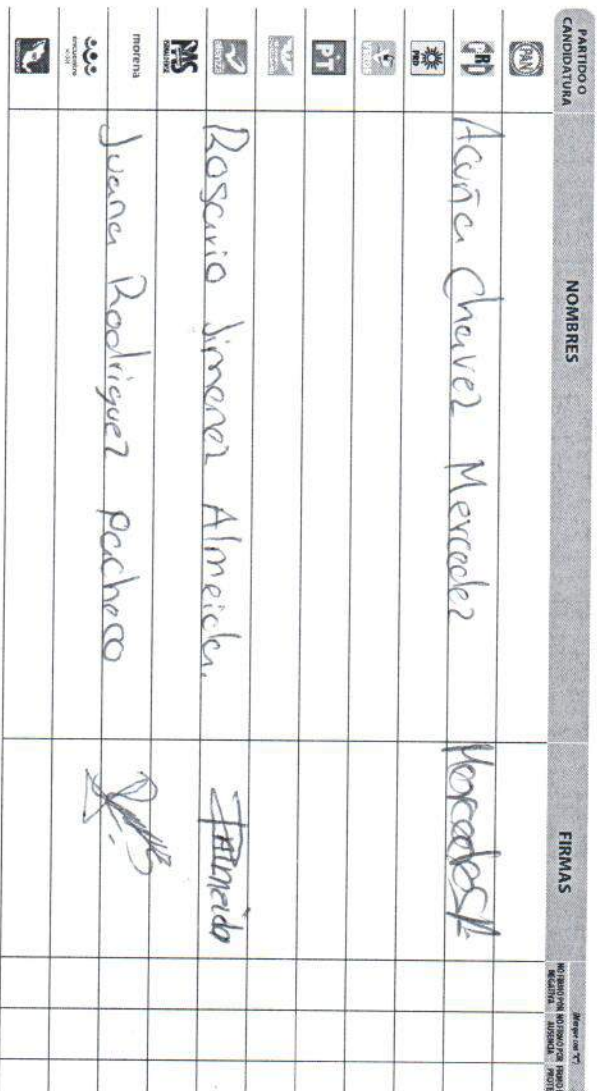 PARTIDO O CANDIDATURA NOMBRES FIRMAS (Marque con "X")
NO FIRMÓ POR NEGATIVA NO FIRMÓ POR AUSENCIA
PAN
PRI Acuña Chavez Mercedez Mercedes
PRD
VERDE
PT
alianza Rosario Jimenez Almeida. Almeida
PAS
morena Juana Rodriguez pacheco
encuentro